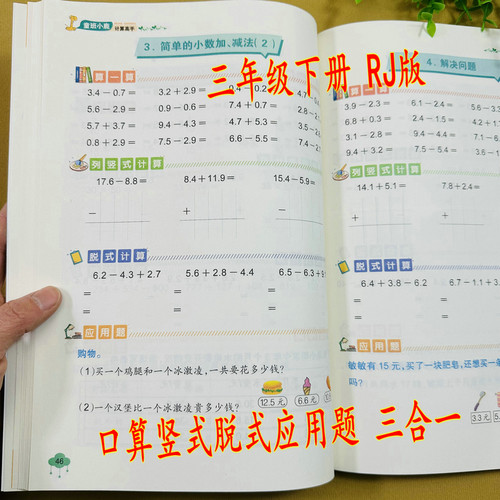 童班小熊
计算高手
3. 简单的小数加、减法(2)
算一算
3.4－0.7＝ 3.2＋2.9＝
5.6－2.9＝ 0.9－0.6＝ 7.4＋0.7＝
5.7＋3.7＝ 9.4－4.3＝ 4.7＋5.3＝
0.8＋2.9＝ 7.5－2.9＝ 6.6－5.5＝
列竖式计算
17.6－8.8＝ 8.4＋11.9＝ 15.4－5.9＝
－ ＋ －
脱式计算
6.2－4.3＋2.7 5.6＋2.8－4.4 6.5－6.3＋
＝ ＝ ＝
＝ ＝ ＝
应用题
购物。
(1)买一个鸡腿和一个冰激凌，一共要花多少钱？
(2)一个汉堡比一个冰激凌贵多少钱？
12.5元 6.6元
46
4. 解决问题
算一算
3.9－2.3＝ 6.1－2.4＝
6.8＋0.3＝ 2.4－1.5＝
3.1－2.8＝ 9.4－4.4＝
9.4＋3.2＝ 7.5－5.4＝
列竖式计算
14.1＋5.1＝ 7.8＋2.4＝
＋ ＋
脱式计算
6.4＋3.8－6.2 6.7－1.1＋3.
＝ ＝
＝ ＝
应用题
敏敏有15元，买了一块肥皂，还想买一条
吗？
3.3元
三年级下册 RJ版
口算竖式脱式应用题 三合一